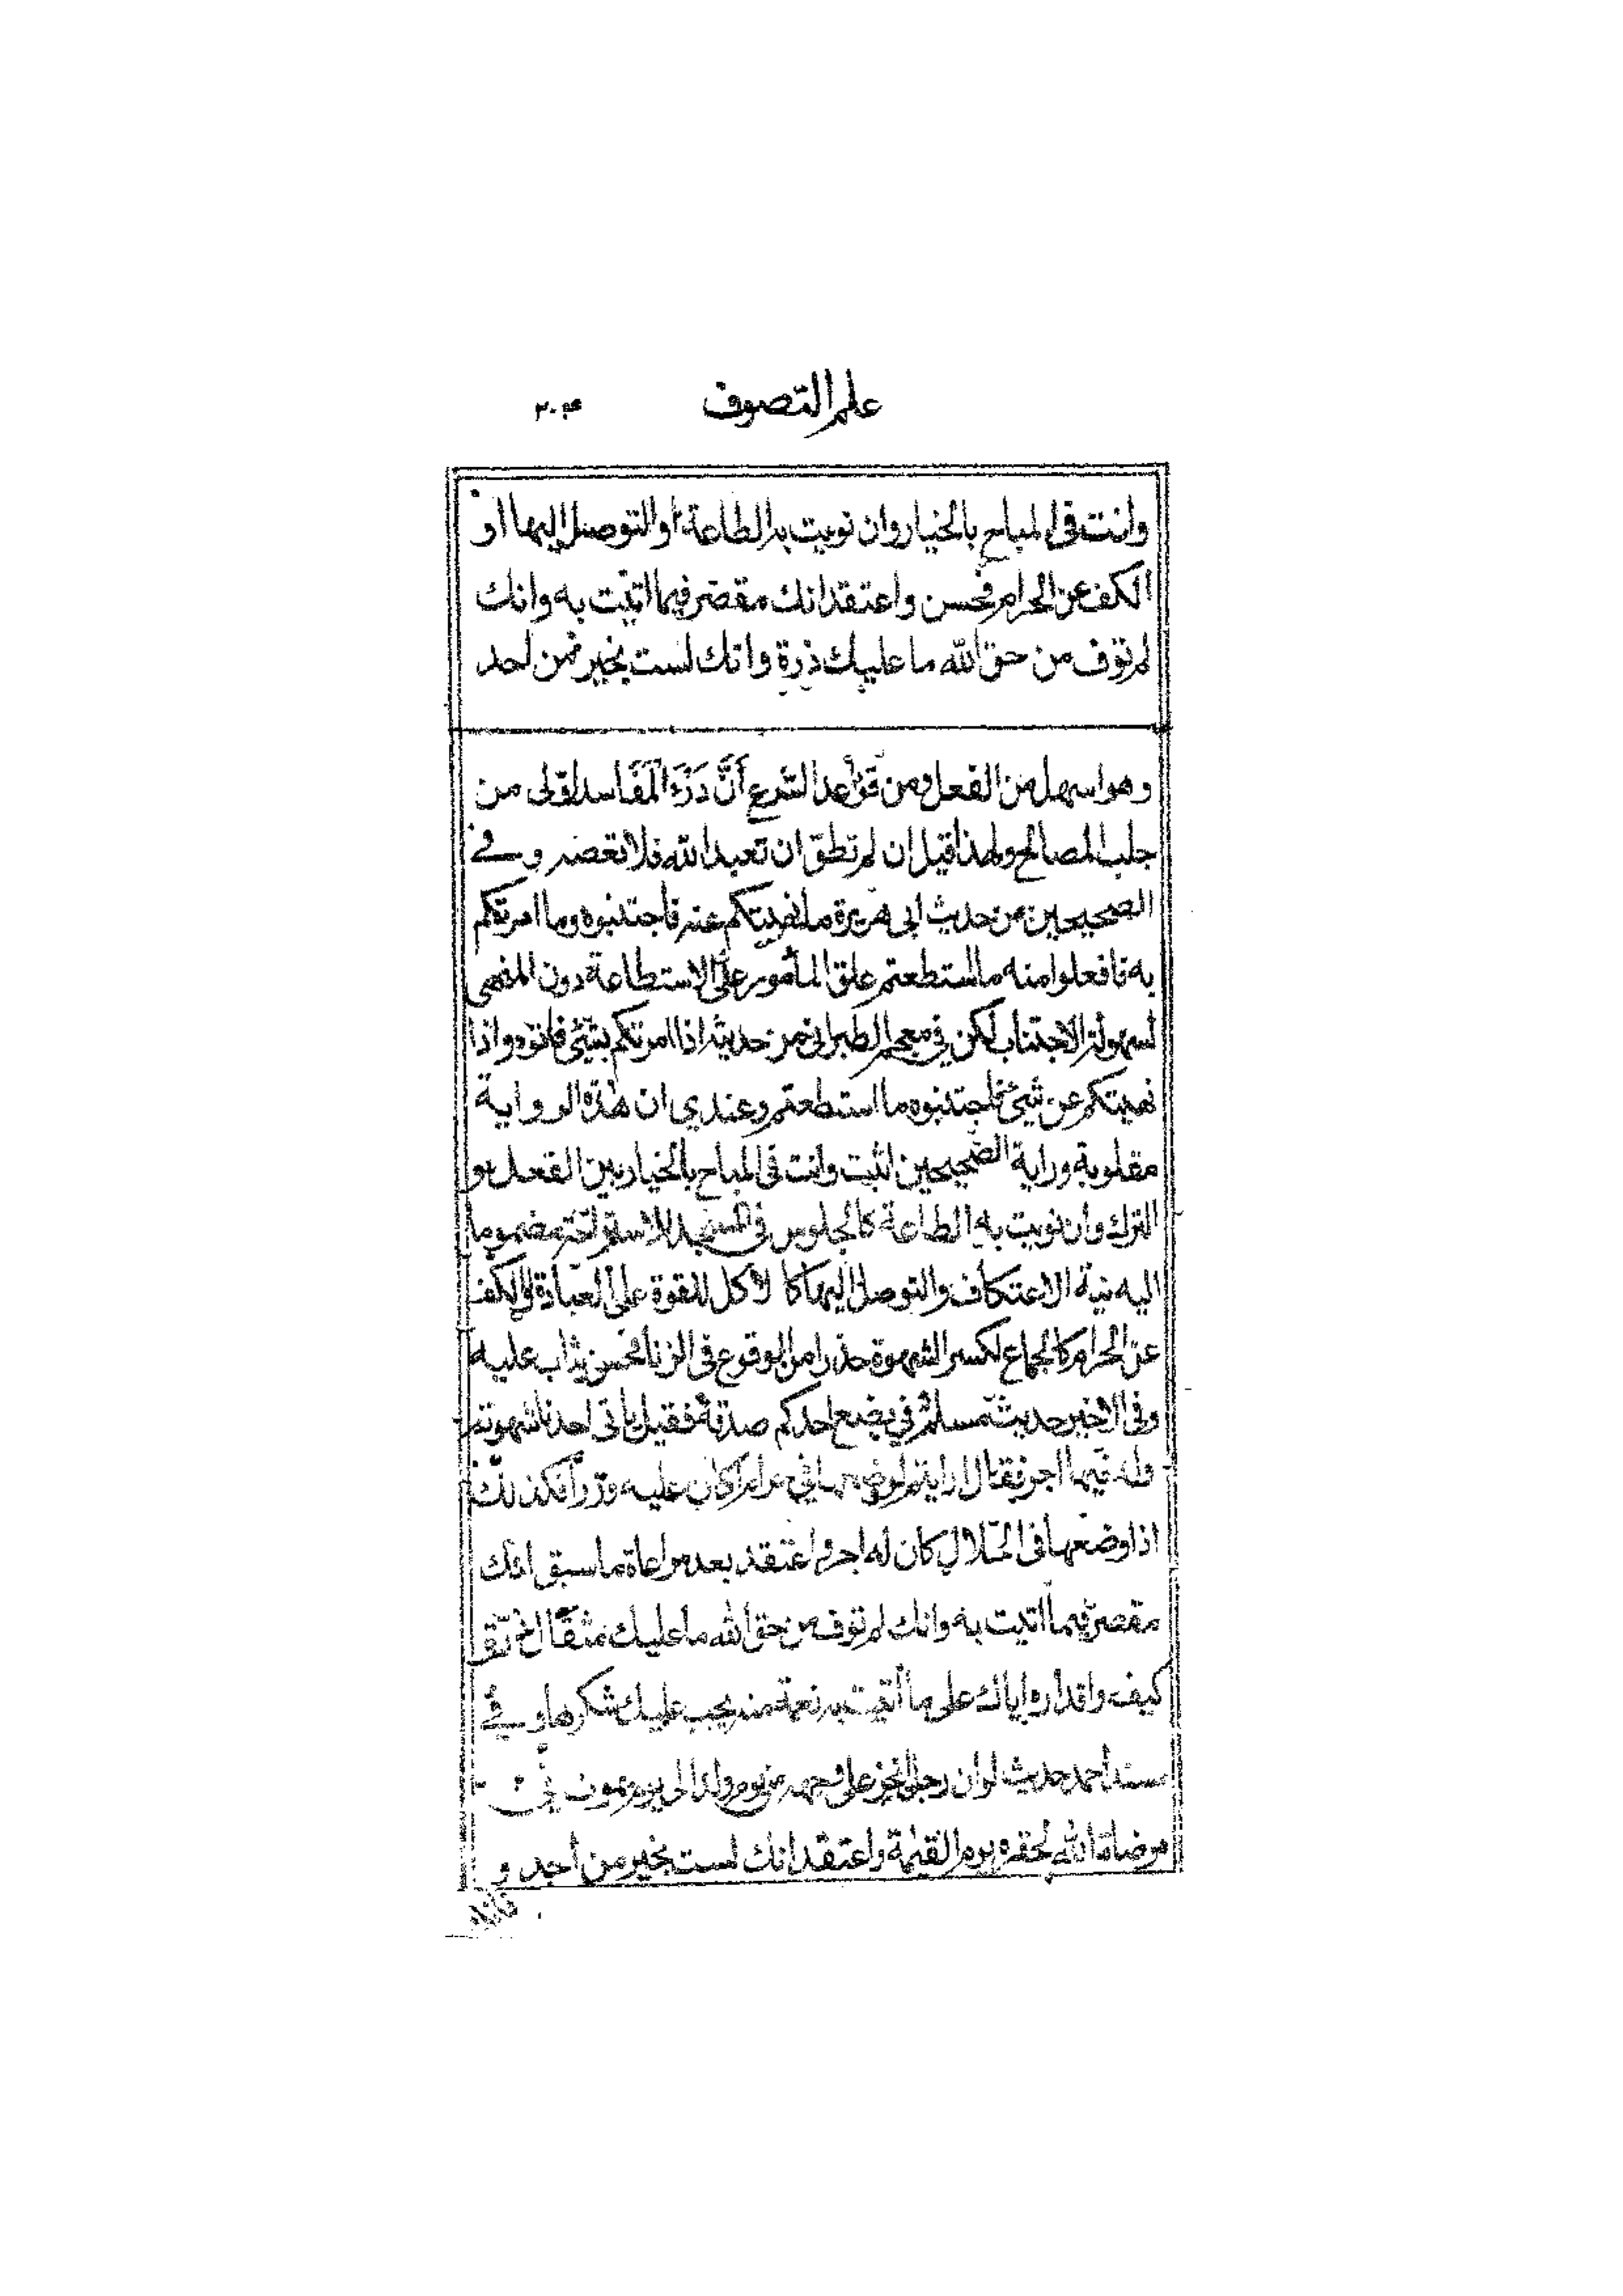 علم التصوف ٢٠٤
وانت فى المباح بالخيار وان نويت به الطاعة او التوصل اليها او
الكف عن الحرام فحسن واعتقد انك مقصر فيما اتيت به وانك
لم توف من حق الله ما عليك ذرة وانك لست بخير من احد
وهو اسهل من الفعل ومن قواعد الشرع أَنَّ دَرْءَ الْمَفَاسد اولى من
جلب المصالح ولهذا قيل ان لم تطق ان تعبد الله فلا تعصه وفے
الصحيحين من حديث ابى هريرة ما نهيتكم عنه فاجتنبوه وما امرتكم
به فافعلوا منه ما استطعتم علق المأمور على الاستطاعة دون المنهى
لسهولة الاجتناب لكن في معجم الطبرانى من حديثه اذا امرتكم بشئ فاتوه واذا
نهيتكم عن شئ فاجتنبوه ما استطعتم وعندي ان هذه الرواية
مقلوبة وراية الصحيحين اثبت وانت فى المباح بالخيار بين الفعل و
الترك وان نويت به الطاعة كالجلوس فى المسجد للاستراحة مضموما
اليه نية الاعتكاف والتوصل اليها كا لاكل للقوة على العبادة او الكف
عن الحرام كالجماع لكسر الشهوة حذرا من الوقوع فى الزنا فحسن يثاب عليه
وفى الاخير حديث مسلم في بضع احدكم صدقة فقيل ياتى احدنا شهوته
وله فيها اجر فقال ارايتم لو وضعها في حرام كان عليه وزر افكذلك
اذا وضعها فى الحلال كان له اجر واعتقد بعد مراعاة ما سبق انك
مقصر فيما اتيت به وانك لم توف من حق الله ما عليك مثقال
كيف واقداره اياك على ما اتيت به نعمة منه يجب عليك شكرها وفے
مسند أحمد حديث لو ان رجلا يخر على وجهه من يوم ولد الى يوم يموت في
مرضاة الله لحقره يوم القيمة واعتقد انك لست بخير من أحد و